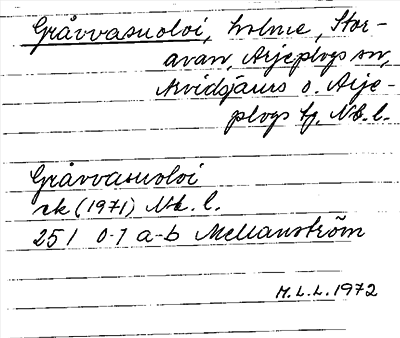 Gråvvasuoloi, holme, Stor-
avan, Arjeplogs sn,
Arvidsjaurs o. Arje-
plogs tg, Nb. l.
Gråvvasuoloi
rk (1971) Nb. l.
25 I 0-1 a-b Mellanström
M.L.L. 1972